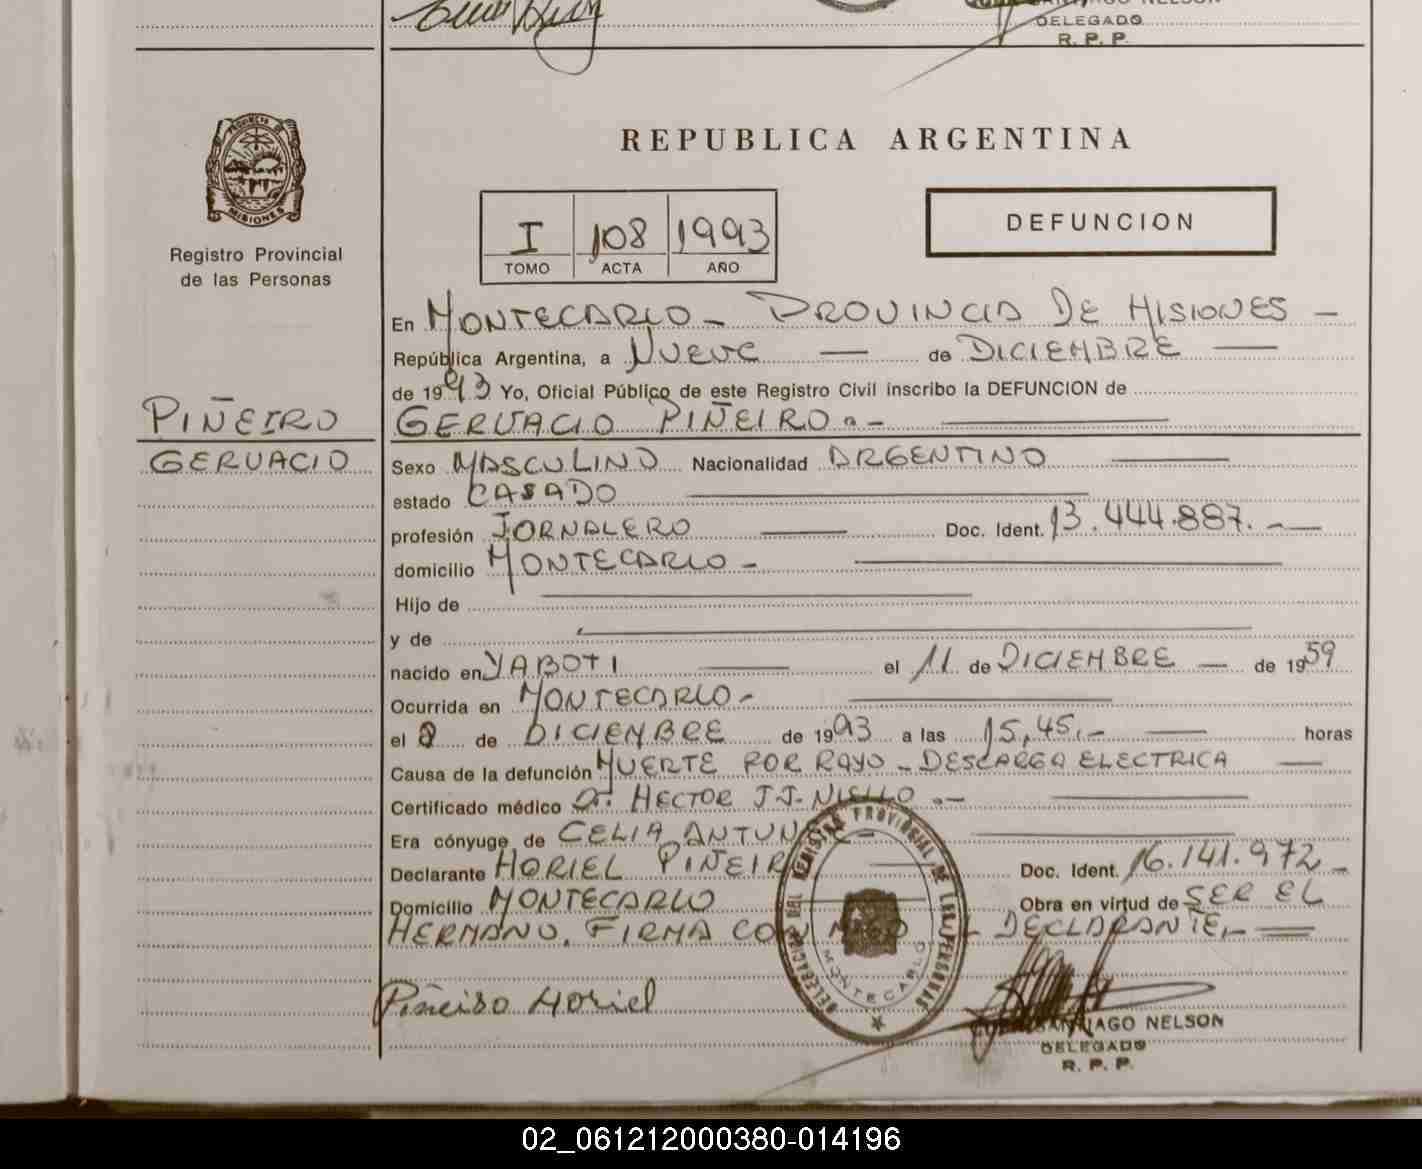 SANTIAGO NELSON
DELEGADO
R. P. P.
PROVINCIA DE
MISIONES
Registro Provincial
de las Personas
REPUBLICA ARGENTINA
I 108 1993
TOMO ACTA AÑO
DEFUNCION
En MONTECARLO - PROVINCIA DE MISIONES -
República Argentina, a NUEVE — de DICIEMBRE —
de 1993 Yo, Oficial Público de este Registro Civil inscribo la DEFUNCION de
PIÑEIRO
GERVACIO PIÑEIRO.-
GERVACIO
Sexo MASCULINO Nacionalidad ARGENTINO
estado CASADO
profesión JORNALERO Doc. Ident. 13.444.887.-
domicilio MONTECARLO -
Hijo de
y de
nacido en YABOTI el 11 de DICIEMBRE — de 1959
Ocurrida en MONTECARLO -
el 8 de DICIEMBRE de 1993 a las 15,45.- horas
Causa de la defunción MUERTE POR RAYO - DESCARGA ELECTRICA
Certificado médico Dr. HECTOR J.J. NIELLO.-
Era cónyuge de CELIA ANTUNEZ -
Declarante HORIEL PIÑEIRO Doc. Ident. 16.141.972 -
Domicilio MONTECARLO Obra en virtud de SER EL
HERMANO. FIRMA CONMIGO EL DECLARANTE,-
Piñeiro Horiel
DELEGACION DEL REGISTRO PROVINCIAL DE LAS PERSONAS
MONTECARLO
SANTIAGO NELSON
DELEGADO
R. P. P.
02_061212000380-014196